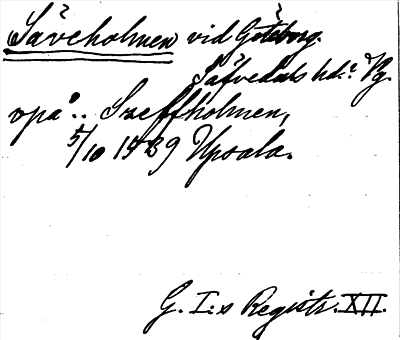 Säveholmen vid Göteborg.
Säfvedals hd.? Vg.
vpå.. Szeffholmen,
5/10 1539 Upsala.
G. I:s Registr. XII.